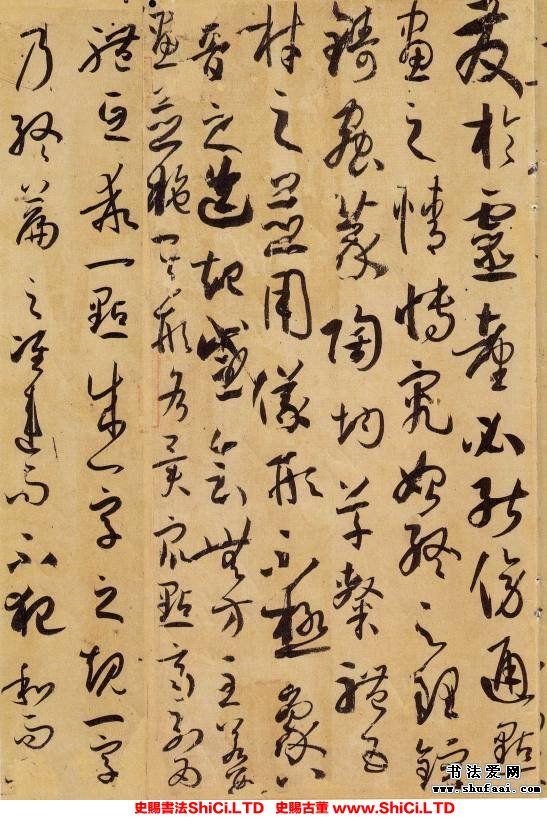 發於靈臺必能傍通點
畫之情博究始終之理鎔
鑄蟲篆陶均草隸體五
材之並用儀形不極象八
音之迭起感會無方至若數
畫並施其形各異衆點齊列為
體互乖一點成一字之規一字
乃終篇之准違而不犯和而
书法爱网
www.shufaai.com
史賜書法ShiCi.LTD 史賜古董 www.ShiCi.LTD